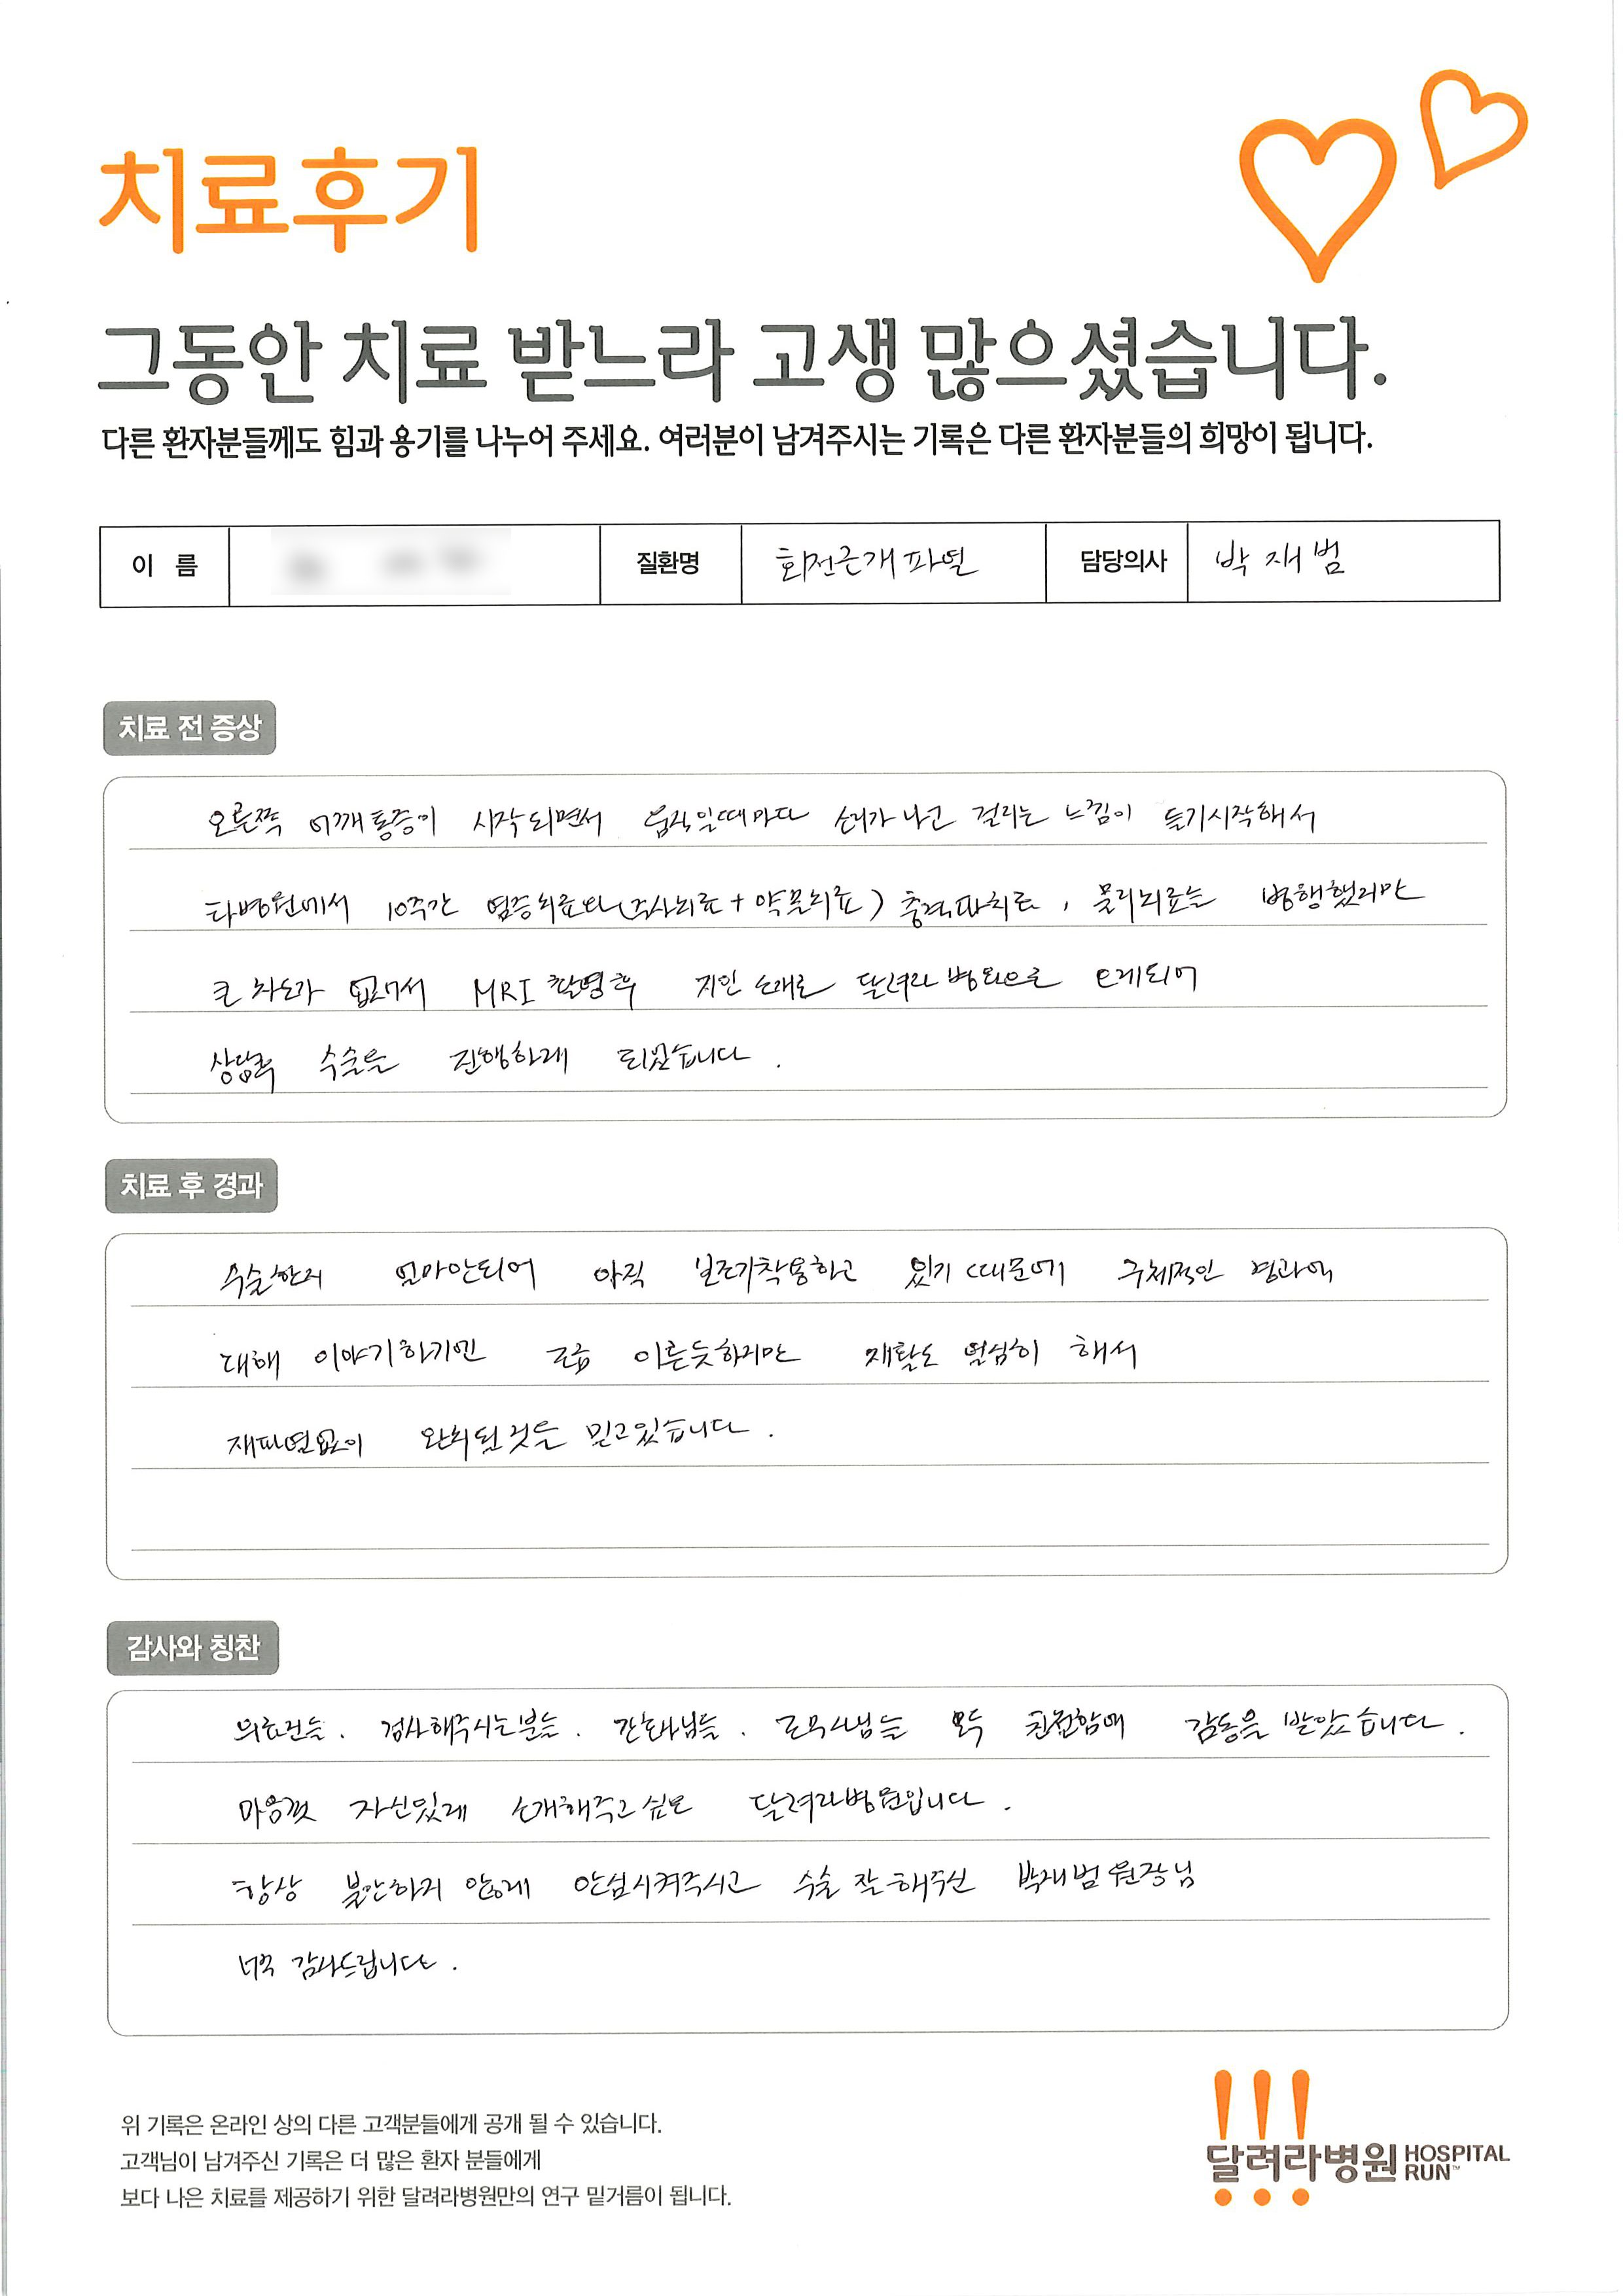 치료후기
그동안 치료 받느라 고생 많으셨습니다.
다른 환자분들께도 힘과 용기를 나누어 주세요. 여러분이 남겨주시는 기록은 다른 환자분들의 희망이 됩니다.
이 름 질환명 회전근개파열 담당의사 박재범
치료 전 증상
오른쪽 어깨통증이 시작되면서 움직일때마다 소리가 나고 걸리는 느낌이 들기시작해서
타병원에서 10주간 염증치료와(주사치료 + 약물치료) 충격파치료, 물리치료를 병행했지만
큰 차도가 없어서 MRI 촬영후 지인 소개로 달려라 병원으로 오게되어
상담후 수술을 진행하게 되었습니다.
치료 후 경과
수술한지 얼마안되어 아직 보조기착용하고 있기 때문에 구체적인 경과에
대해 이야기하기엔 조금 이른듯하지만 재활도 열심히 해서
재파열없이 완치될것을 믿고있습니다.
감사와 칭찬
의료진들. 검사해주시는분들. 간호사님들. 조무사님들 모두 친절함에 감동을 받았습니다.
마음껏 자신있게 소개해주고 싶은 달려라병원입니다.
항상 불안하지 않게 안심시켜주시고 수술 잘 해주신 박재범 원장님
너무 감사드립니다.
위 기록은 온라인 상의 다른 고객분들에게 공개 될 수 있습니다.
고객님이 남겨주신 기록은 더 많은 환자 분들에게
보다 나은 치료를 제공하기 위한 달려라병원만의 연구 밑거름이 됩니다.
달려라병원 HOSPITAL RUN™